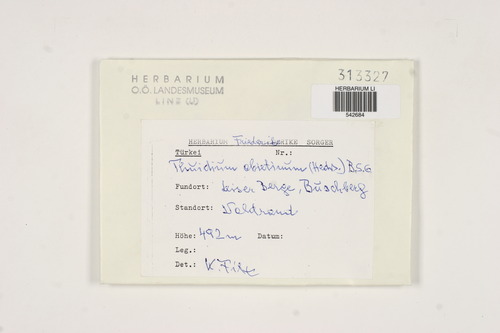 HERBARIUM
O.Ö. LANDESMUSEUM
LINZ (U)
313327
HERBARIUM LI
542684
HERBARIUM Friederike SORGER
Türkei Nr.:
Thuidium abietinum (Hedw.) B.S.G.
Fundort: Leiser Berge, Buschberg
Standort: Waldrand
Höhe: 492m Datum:
Leg.:
Det.: